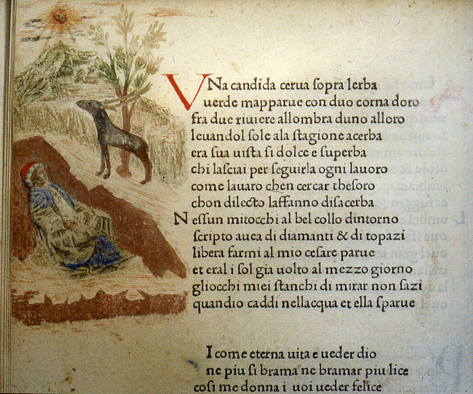 VNa candida cerua sopra lerba
uerde mapparue con duo corna doro
fra due riuiere allombra duno alloro
leuandol sole ala stagione acerba
era sua uista si dolce e superba
chi lasciai per seguirla ogni lauoro
come lauaro chen cercar thesoro
chon dilecto laffanno disacerba
Nessun mitocchi al bel collo dintorno
scripto auea di diamanti & di topazi
libera farmi al mio cesare parue
et eral sol gia uolto al mezzo giorno
gliocchi miei stanchi di mirar non sazi
quandio caddi nellacqua et ella sparue
I come eterna uita e ueder dio
ne piu si brama ne bramar piu lice
cosi me donna i uoi ueder felice